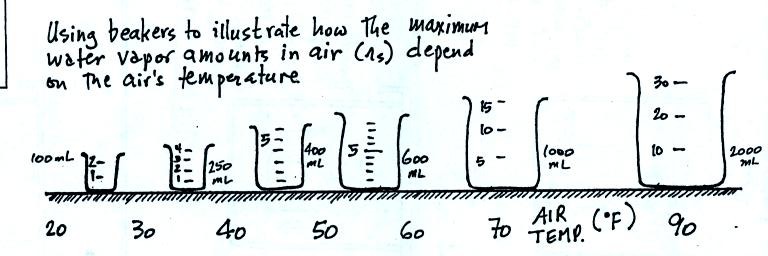 Using beakers to illustrate how the maximum
water vapor amounts in air (rs) depend
on the air's temperature
100mL 2 1
4 3 2 1 250 mL
5 400 mL
5 600 mL
15 10 5 1000 mL
30 20 10 2000 mL
20 30 40 50 60 70 AIR TEMP. (°F) 90